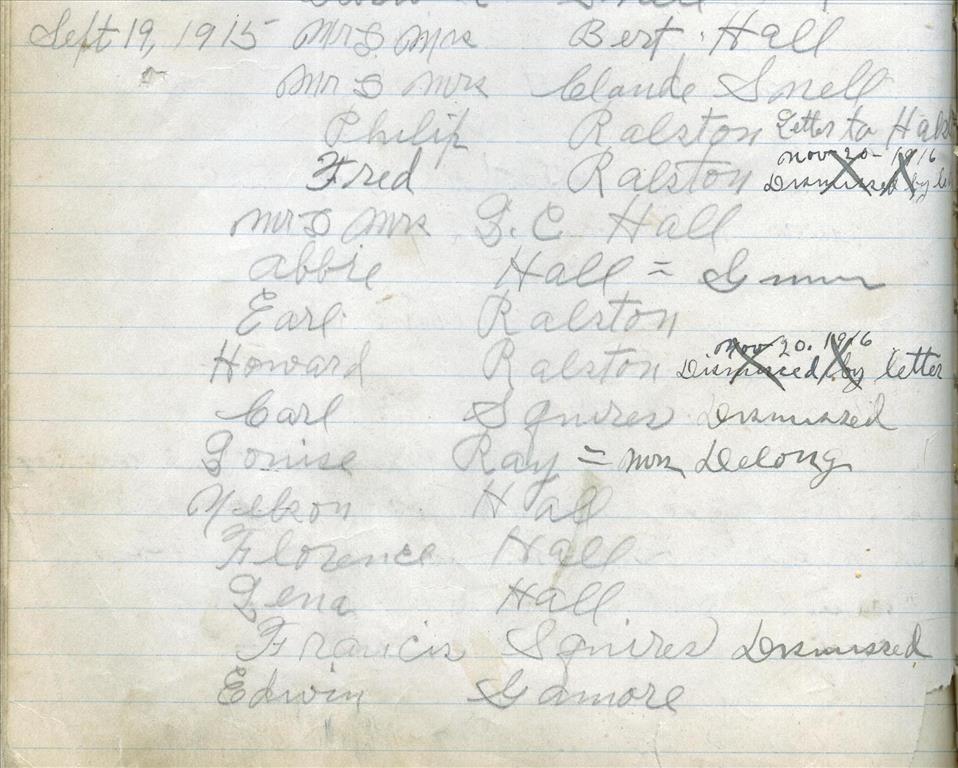 Sept 19, 1915 Mr & Mrs Bert Hall
Mr & Mrs Claude Snell
Philip Ralston Letter to
Fred Ralston Nov 20 - 1916
Dismissed by
Mr & Mrs G. C. Hall
Abbie Hall =
Earl Ralston
Howard Ralston Nov 20. 1916
Dismissed by letter
Carl Squires Dismissed
Louise Ray = Mrs Delong
Nelson Hall
Florence Hall
Lena Hall
Francis Squires Dismissed
Edwin Gamore